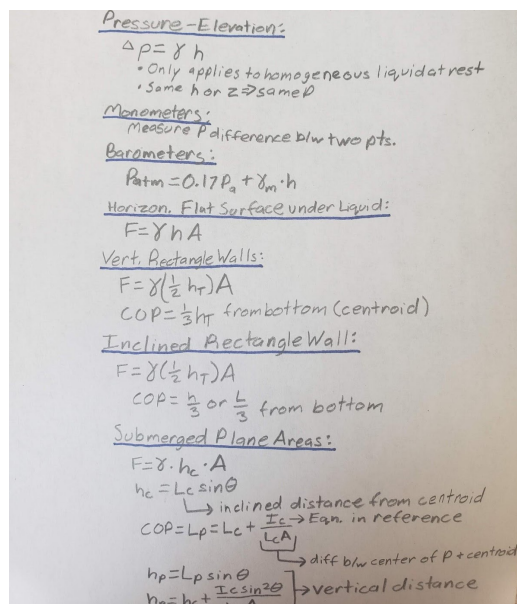 Pressure-Elevation:
Δp = γ h
• Only applies to homogeneous liquid at rest
• Same h or z ⇒ same P
Monometers:
Measure P difference b/w two pts.
Barometers:
Patm = 0.17 Pa + γm · h
Horizon. Flat Surface under Liquid:
F = γ h A
Vert. Rectangle Walls:
F = γ(1/2 hT) A
COP = 1/3 hT from bottom (centroid)
Inclined Rectangle Wall:
F = γ(1/2 hT) A
COP = h/3 or L/3 from bottom
Submerged Plane Areas:
F = γ · hc · A
hc = Lc sinθ
↳ inclined distance from centroid
COP = Lp = Lc + Ic/LcA → Eqn. in reference
↳ diff b/w center of P + centroid
hp = Lp sin θ
→ vertical distance
hp = hc + Ic sin2θ